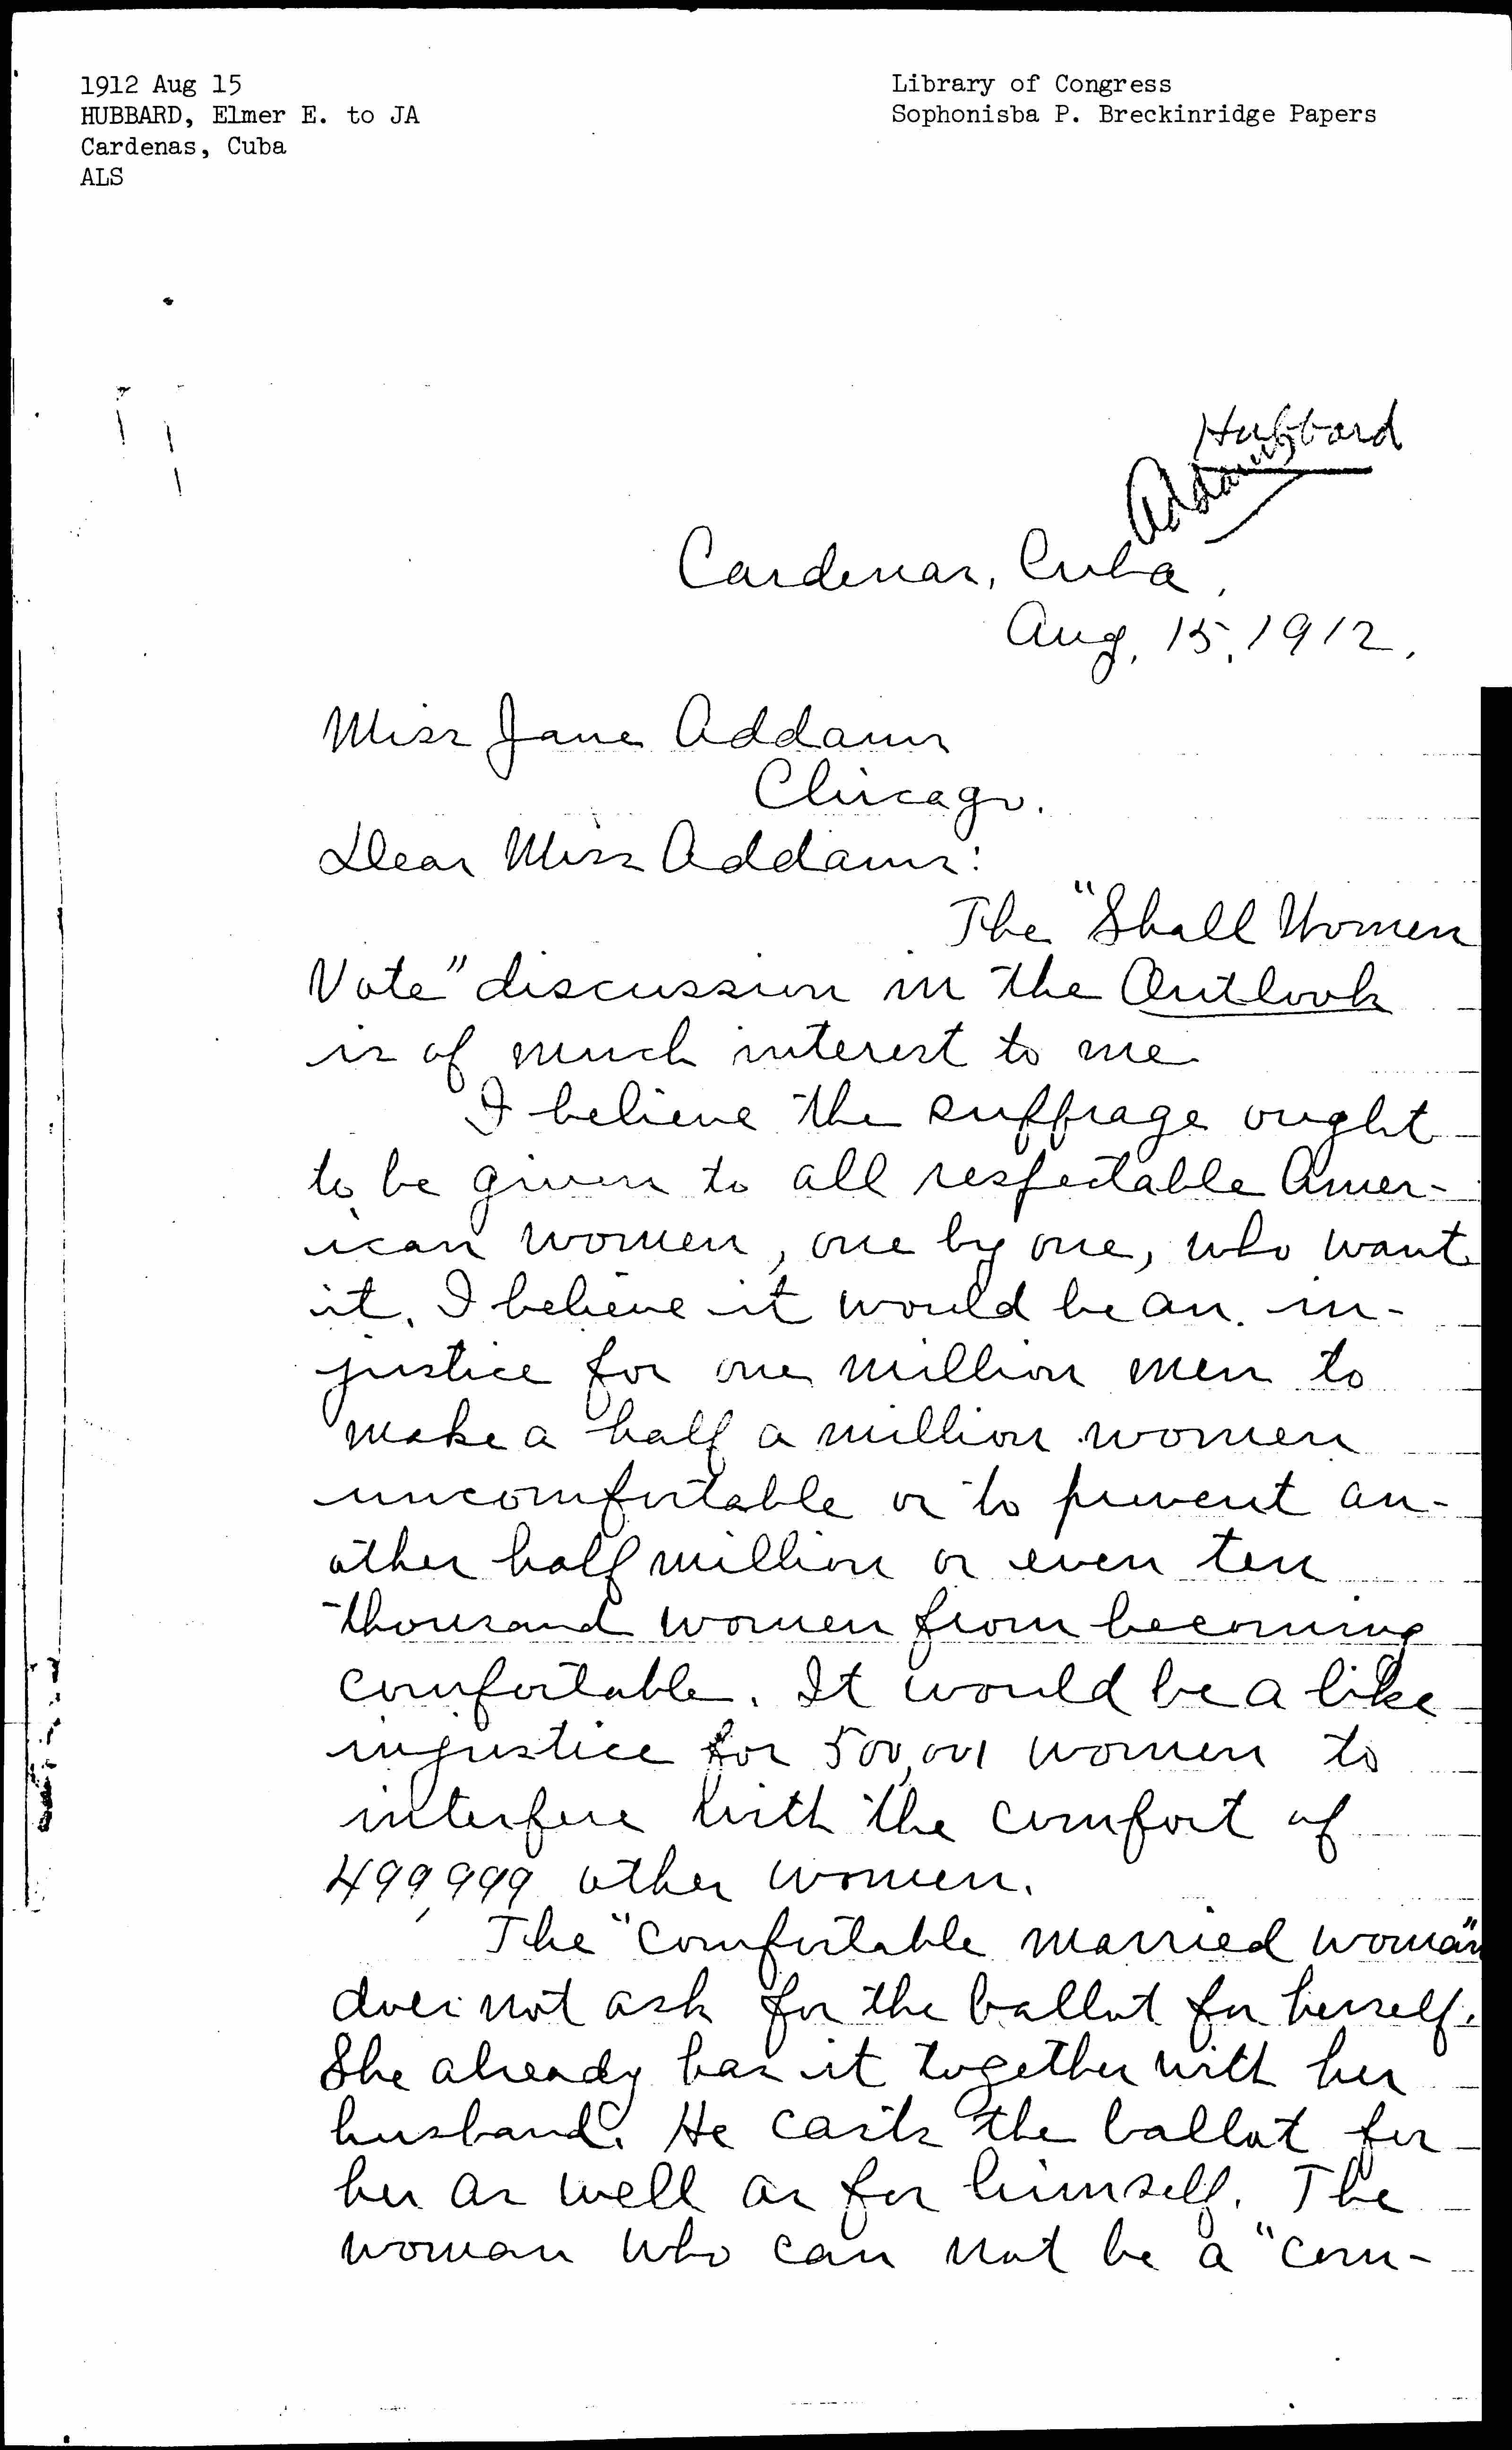 1912 Aug 15
HUBBARD, Elmer E. to JA
Cardenas, Cuba
ALS
Library of Congress
Sophonisba P. Breckinridge Papers
Hubbard
Addams
Cardenas, Cuba,
Aug, 15, 1912.
Miss Jane Addams
Chicago.
Dear Miss Addams:
The "Shall Women
Vote" discussion in the Outlook
is of much interest to me
I believe the suffrage ought
to be given to all respectable Amer-
ican women, one by one, who want
it. I believe it would be an in-
justice for one million men to
make a half a million women
uncomfortable or to prevent an-
other half million or even ten
thousand women from becoming
comfortable. It would be a like
injustice for 500,001 women to
interfere with the comfort of
499,999 other women.
The "comfortable married woman"
does not ask for the ballot for herself.
She already has it together with her
husband. He casts the ballot for
her as well as for himself. The
woman who can not be a "com-